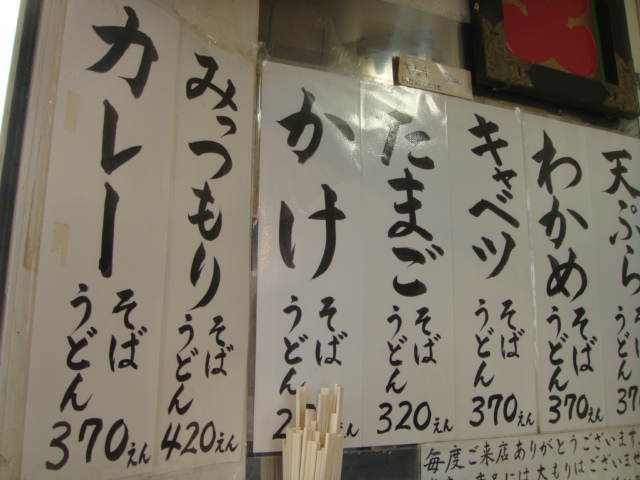 カレー
そば
うどん
370えん
みっつもり
そば
うどん
420えん
かけ
そば
うどん
たまご
そば
うどん
320えん
キャベツ
そば
うどん
370えん
わかめ
そば
うどん
370えん
天ぷら
37
毎度ご来店ありがとうございます
には大もりはございませ